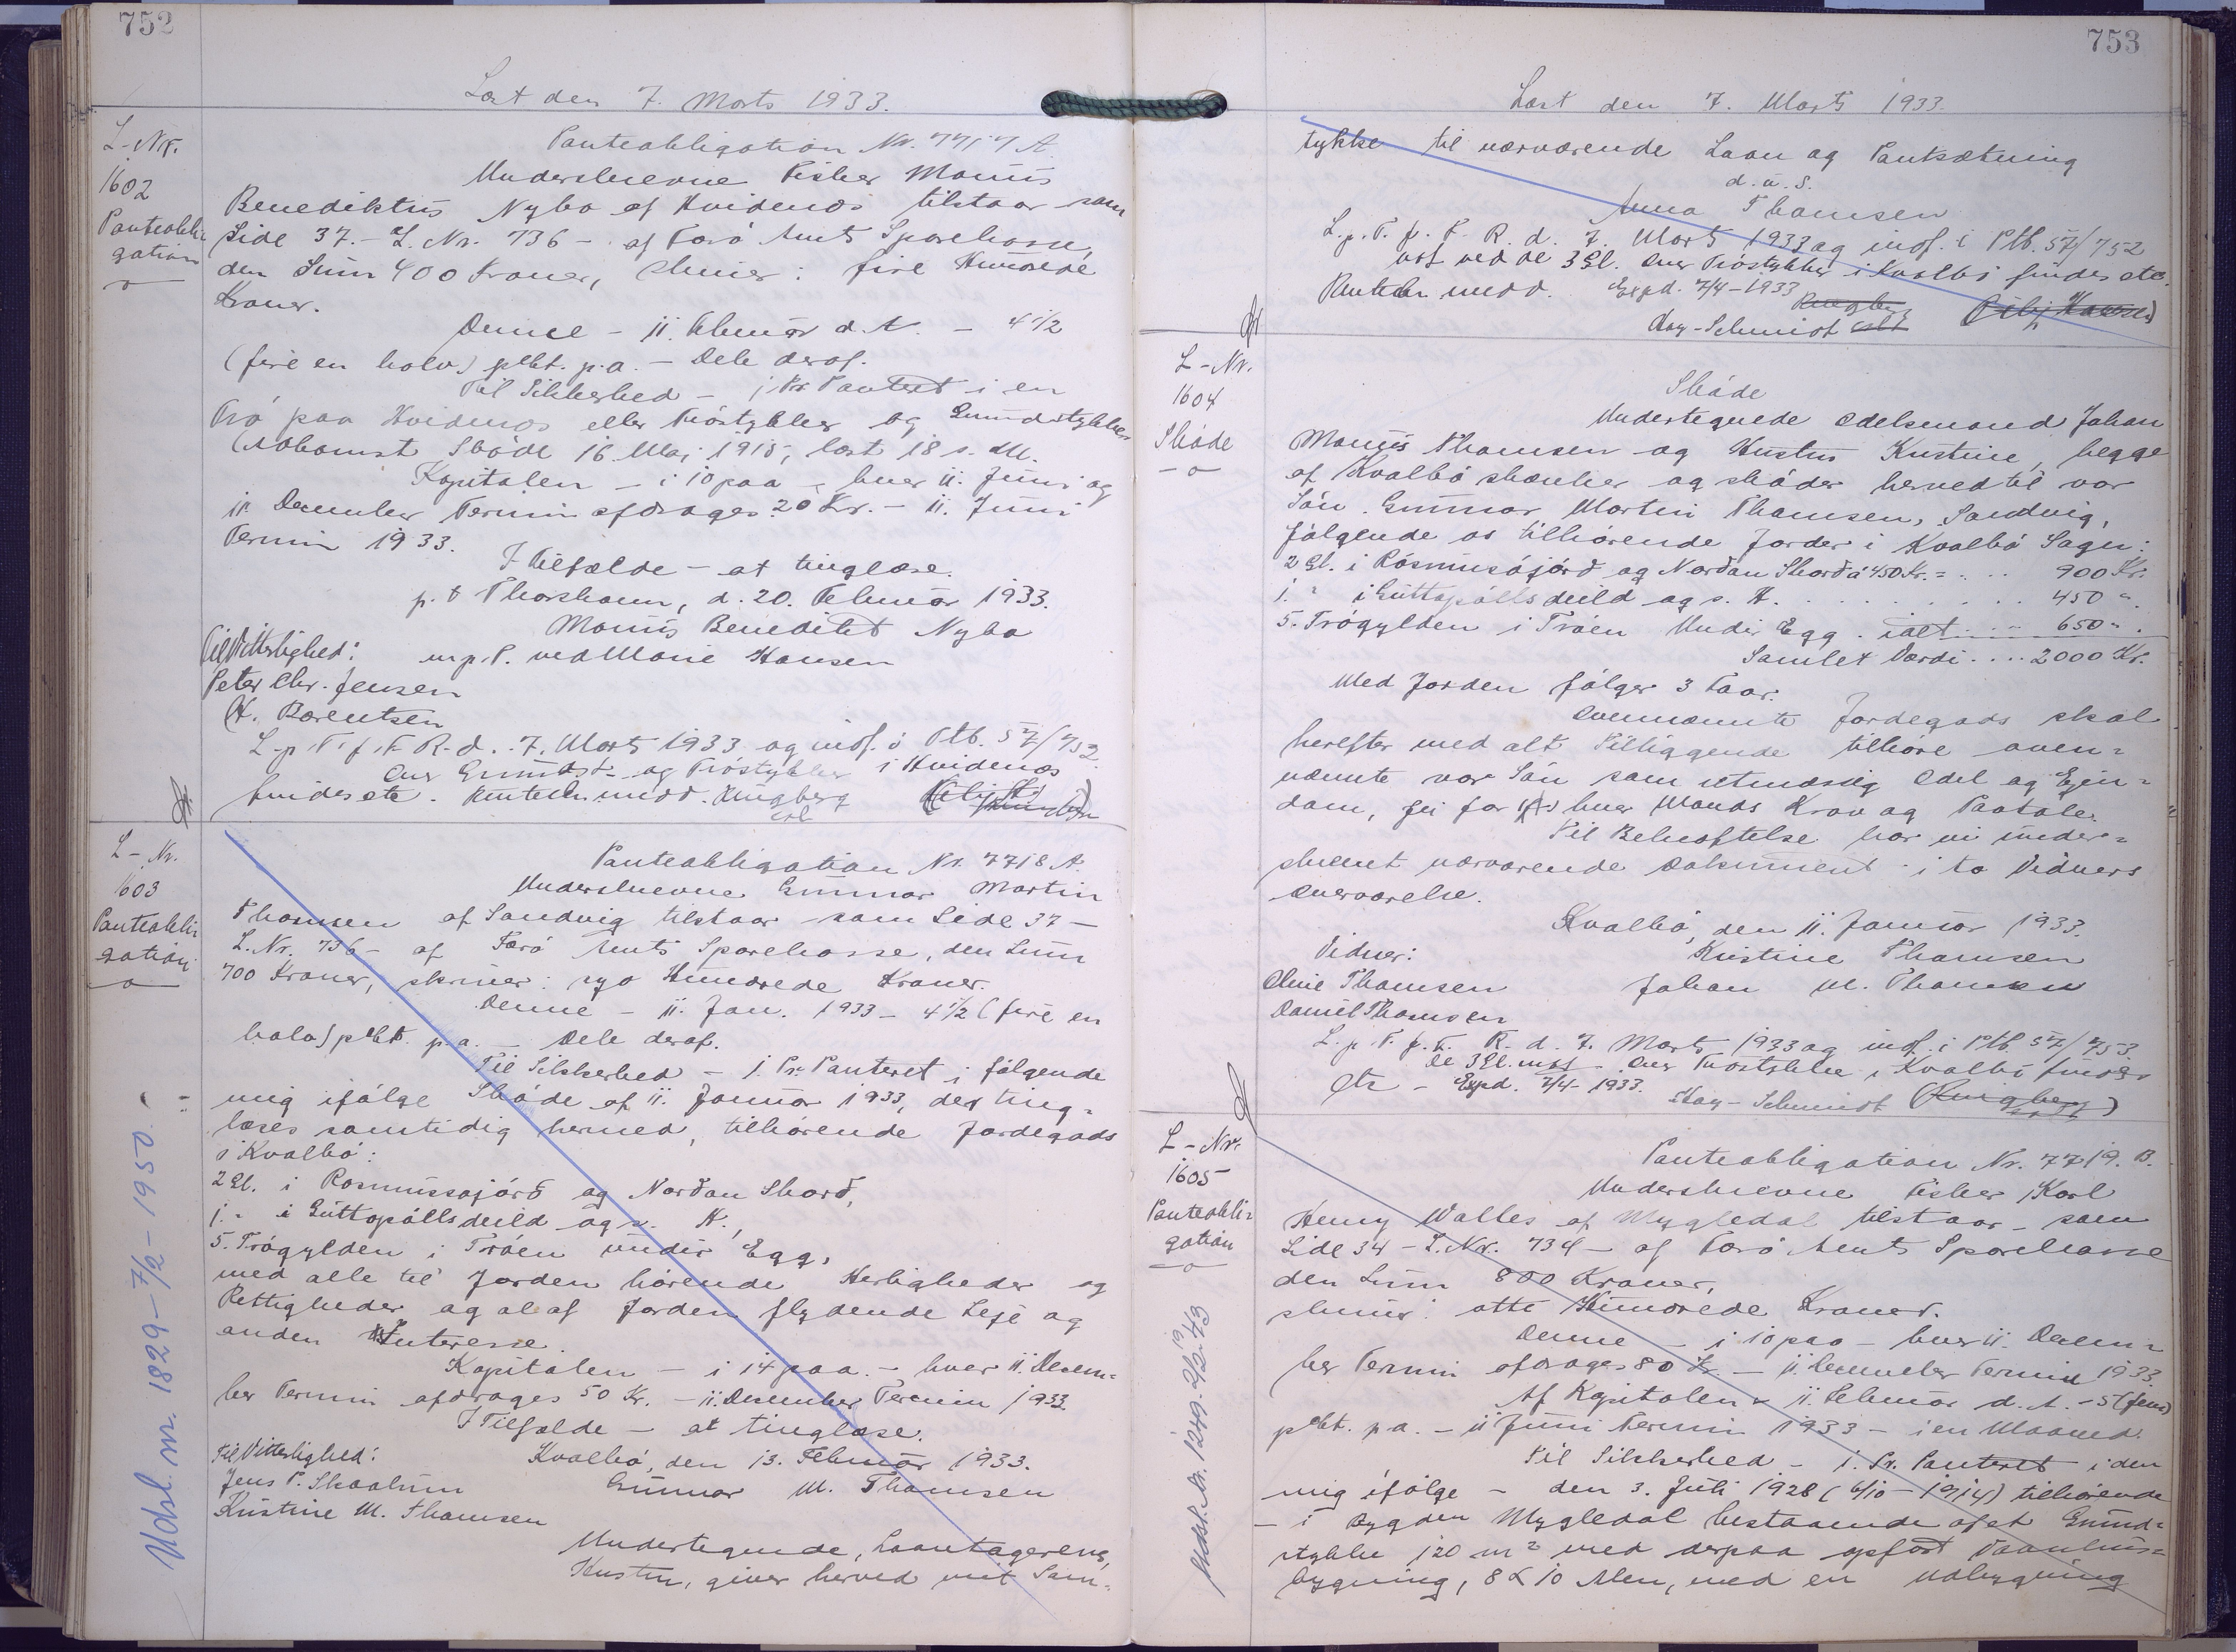 752
Læst den 7. Marts 1933.
L-Nr.
1602
Panteobli-
gation
Panteobligation Nr. 7717 A.
Underskrevne Fisker Mouris
Benediktus Nybo af Hvidenæs tilstaar som
Side 37.- L. Nr. 736 - af Færø Amts Sparekasse,
den Sum 400 Kroner, skriver: fire Hundrede
Kroner.
Denne - 11. Februar d. A. - 4 1/2
(fire en halv) pCt. p.a. - Dele deraf.
Til Sikkerhed - 1. Pr. Panteret i en
Trø paa Hvidenæs eller Trøstykker og Grundstykker
(Adkomst Skøde 16 Maj 1918, læst 18 s. M.
Kapitalen - i 10 paa - hver 11. Juni og
11. December Termin afdrages 20 Kr. - 11. Juni
Termin 1933.
I Tilfælde - at tinglæse.
p.t Thorshavn, d. 20. Februar 1933.
Mouris Benedikt Nybo
Til Vitterlighed: m.p.P. ved Marie Hansen
Peter Chr. Jensen
H. Barentsen
L. p. T. f. F. R. d. 7. Marts 1933 og indf. i Ptb. 57/752
Over Grundst- og Trøstykker i Hvidenæs
findes etc. Panteobl. medd. Ringberg
cst
L- Nr.
1603
Panteobli-
gation
Panteobligation Nr. 7718 A.
Underskrevne Gunnar Martin
Thomsen af Sandvig tilstaar som Side 37 -
L. Nr. 736 - af Færø Amts Sparekasse, den Sum
700 Kroner, skriver: syv Hundrede Kroner.
Denne - 11. Jan. 1933 - 4 1/2 (fire en
halv) pCt. p.a. - Dele deraf.
Til Sikkerhed - 1. Pr. Panteret i følgende
mig ifølge Skøde af 11. Januar 1933, der ting-
læses samtidig hermed, tilhørende Jordegods
i Kvalbø:
2 Gl. i Rosmussajørð og Norðan Skorð,
1. " i Guttapállsdeild og s. H.,
5. Trøgylden i Trøen undir Egg,
med alle til Jorden hørende Herligheder og
Rettigheder og al af Jorden flydende Leje og
anden Interesse.
Kapitalen - i 14 paa. - hver 11. Decem-
ber Termin afdrages 50 Kr. - 11. December Termin 1933.
I Tilfælde - at tinglæse.
Til Vitterlighed: Kvalbø, den 13. Februar 1933.
Jens P. Skaalum Gunnar M. Thomsen
Kristine M. Thomsen
Undertegnede, Laantagerens,
Hustru, giver herved mit Sam-
Udsl. nr. 1829 - 7/2 - 1950.
753
Læst den 7. Marts 1933.
tykke til nærværende Laan og Pantsætning
d. u. S.
Anna Thomsen
L. p. T. f. F. R. d. 7. Marts 1933 og indf. i Ptb. 57/752
ved de 3 Gl. Over Trøstykker i Kvalbø findes etc.
Panteobl. medd. Expd. 7/4-1933 Ringberg
Kay-Schmidt cst
L-Nr.
1604
Skøde
Skøde
Undertegnede Odelsmand Johan
Mouris Thomsen og Hustru Kristine, begge
af Kvalbø skænker og skøder herved til vor
Søn. Gunnar Martin Thomsen, Sandvig,
følgende os tilhørende Jorder i Kvalbø Sogn:
2 Gl. i Rósmusajørð og Norðan Skorð á 450 Kr. = . . . 900 Kr.
1. " i Guttapállsdeild og s. H. . . . . . . . . . 450 ".
5. Trøgylden i Trøen Undir Egg. ialt . . . 650 ".
Samlet Værdi . . . . 2000 Kr.
Med Jorden følger 3 Faar.
Ovennævnte Jordegods skal
herefter med alt Tilliggende tilhøre oven-
nævnte vor Søn som retmæssig Odel og Ejen-
dom, fri for hver Mands Krav og Paatale.
Til Bekræftelse har vi under-
skrevet nærværende Dokument i to Vidners
Overværelse.
Kvalbø, den 11. Januar 1933.
Vidner: Kristine Thomsen
Oline Thomsen Johan M. Thomsen
Daniel Thomsen
L. p. T. f. F. R. d. 7. Marts 1933 og indf. i Ptb. 57/753.
de 3 Gl. Over Trøstykker i Kvalbø findes
etc - Expd. 7/4-1933. Kay-Schmidt (Ringberg)
L-Nr.
1605
Panteobli-
gation
Panteobligation Nr. 7719. B.
Underskrevne Fisker Karl
Henry Walles af Mygledal tilstaar - som
Side 34 - L. Nr. 734 - af Færø Amts Sparekasse
den Sum 800 Kroner,
skriver: otte Hundrede Kroner.
Denne - i 10 paa - hver 11. Decem-
ber Termin afdrages 80 Kr. - 11. December Termin 1933.
Af Kapitalen - 11. Februar d. A. - 5 (fem)
pCt. p.a. - 11 Juni Termin 1933 - i en Maaned.
Til Sikkerhed - 1. Pr. Panteret i den
mig ifølge - den 3. Juli 1928 (6/10 - 1914) tilhørende
- i Bygden Mygledal bestaaende af et Grund-
stykke 120 m² med derpaa opført Vaanhus-
bygning, 8 x 10 Alen, med en Udbygning